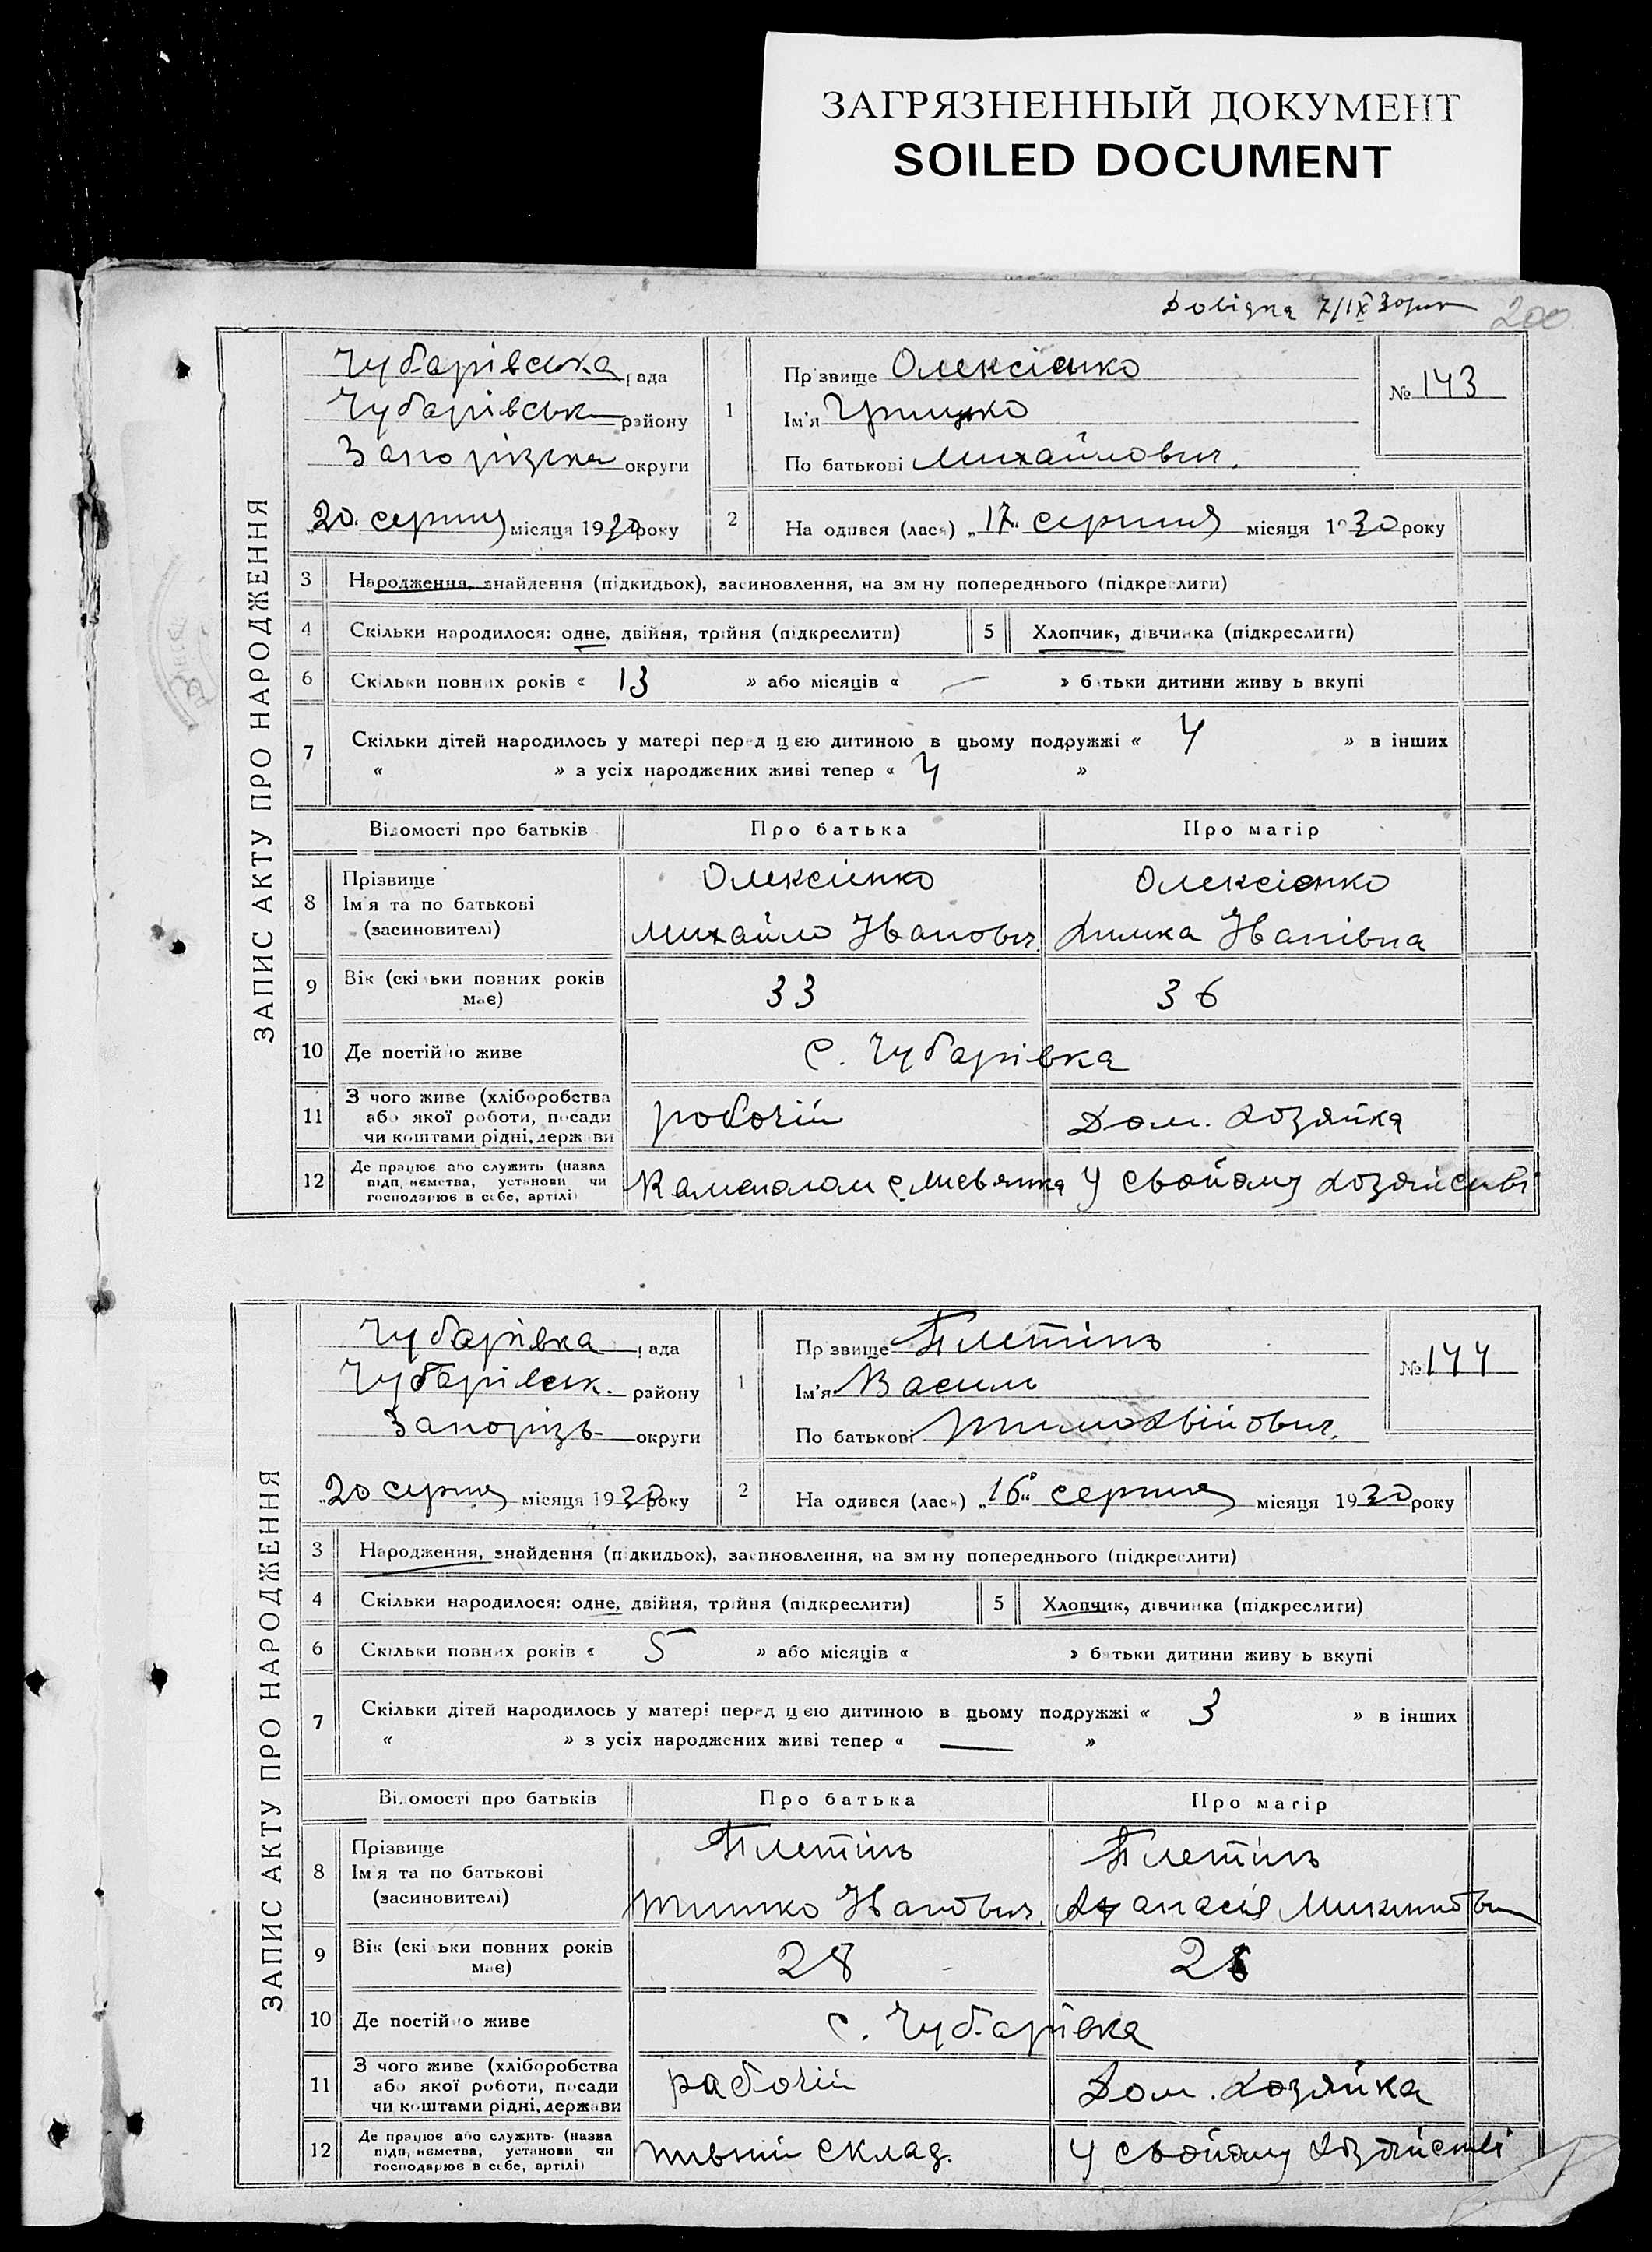 ЗАГРЯЗНЕННЫЙ ДОКУМЕНТ
SOILED DOCUMENT
Довідка 7/IX 30 року
200
ЗАПИС АКТУ ПРО НАРОДЖЕННЯ
Чубарівська рада
Чубарівськ району
Запорізька округи
"20" серпня місяця 1930 року
1
Прізвище Олексієнко
Ім'я Грицько
По батькові Михайлович.
№ 143
2
Народився (лася) „17" серпня місяця 1930 року
3 Народження, знайдення (підкидьок), засиновлення, на зміну попереднього (підкреслити)
4 Скільки народилося: одне, двійня, трійня (підкреслити) 5 Хлопчик, дівчинка (підкреслити)
6 Скільки повних років « 13 » або місяців « — » батьки дитини живуть вкупі
7 Скільки дітей народилось у матері перед цією дитиною в цьому подружжі « 4 » в інших
« » з усіх народжених живі тепер « 4 »
Відомості про батьків Про батька Про матір
8 Прізвище Олексієнко Олексієнко
Ім'я та по батькові
(засиновителі) Михайло Іванович. Химка Іванівна
9 Вік (скільки повних років має) 33 36
10 Де постійно живе с. Чубарівка
11 З чого живе (хліборобства
або якої роботи, посади
чи коштами рідні, держави робочій Дом. хозяйка
12 Де працює або служить (назва
підприємства, установи чи
господарює в себе, артілі) у свойому хозяйстві
ЗАПИС АКТУ ПРО НАРОДЖЕННЯ
Чубарівка рада
Чубарівськ. району
Запорізь- округи
„20 серпня місяця 1930 року
1
Прізвище Плетінь
Ім'я Василь
По батькові Тимохвійович.
№ 144
2
Народився (лася) „16" серпня місяця 1930 року
3 Народження, знайдення (підкидьок), засиновлення, на зміну попереднього (підкреслити)
4 Скільки народилося: одне, двійня, трійня (підкреслити) 5 Хлопчик, дівчинка (підкреслити)
6 Скільки повних років « 5 » або місяців « » батьки дитини живуть вкупі
7 Скільки дітей народилось у матері перед цією дитиною в цьому подружжі « 3 » в інших
« » з усіх народжених живі тепер « — »
Відомості про батьків Про батька Про матір
8 Прізвище Плетінь Плетінь
Ім'я та по батькові
(засиновителі) Тимко Іванович.
9 Вік (скільки повних років має) 28 28
10 Де постійно живе с. Чубарівка
11 З чого живе (хліборобства
або якої роботи, посади
чи коштами рідні, держави рабочій Дом. хозяйка
12 Де працює або служить (назва
підприємства, установи чи
господарює в себе, артілі) пивний склад. у свойому хозяйстві